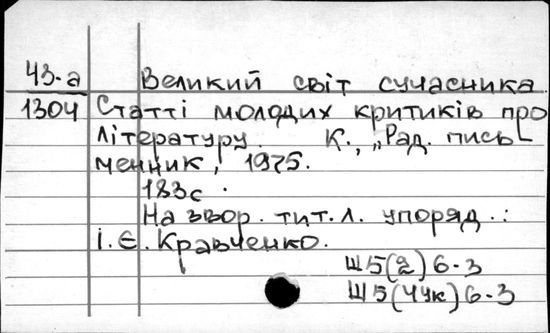 43-а Великий світ сучасника
1304 Статті молодих критиків про
літературу. К., „Рад. пись-
менник“, 1975.
183с.
На звор. тит. л. упоряд.:
І. Є. Кравченко.
Ш5(2)6-3
Ш5(4Ук)6-3